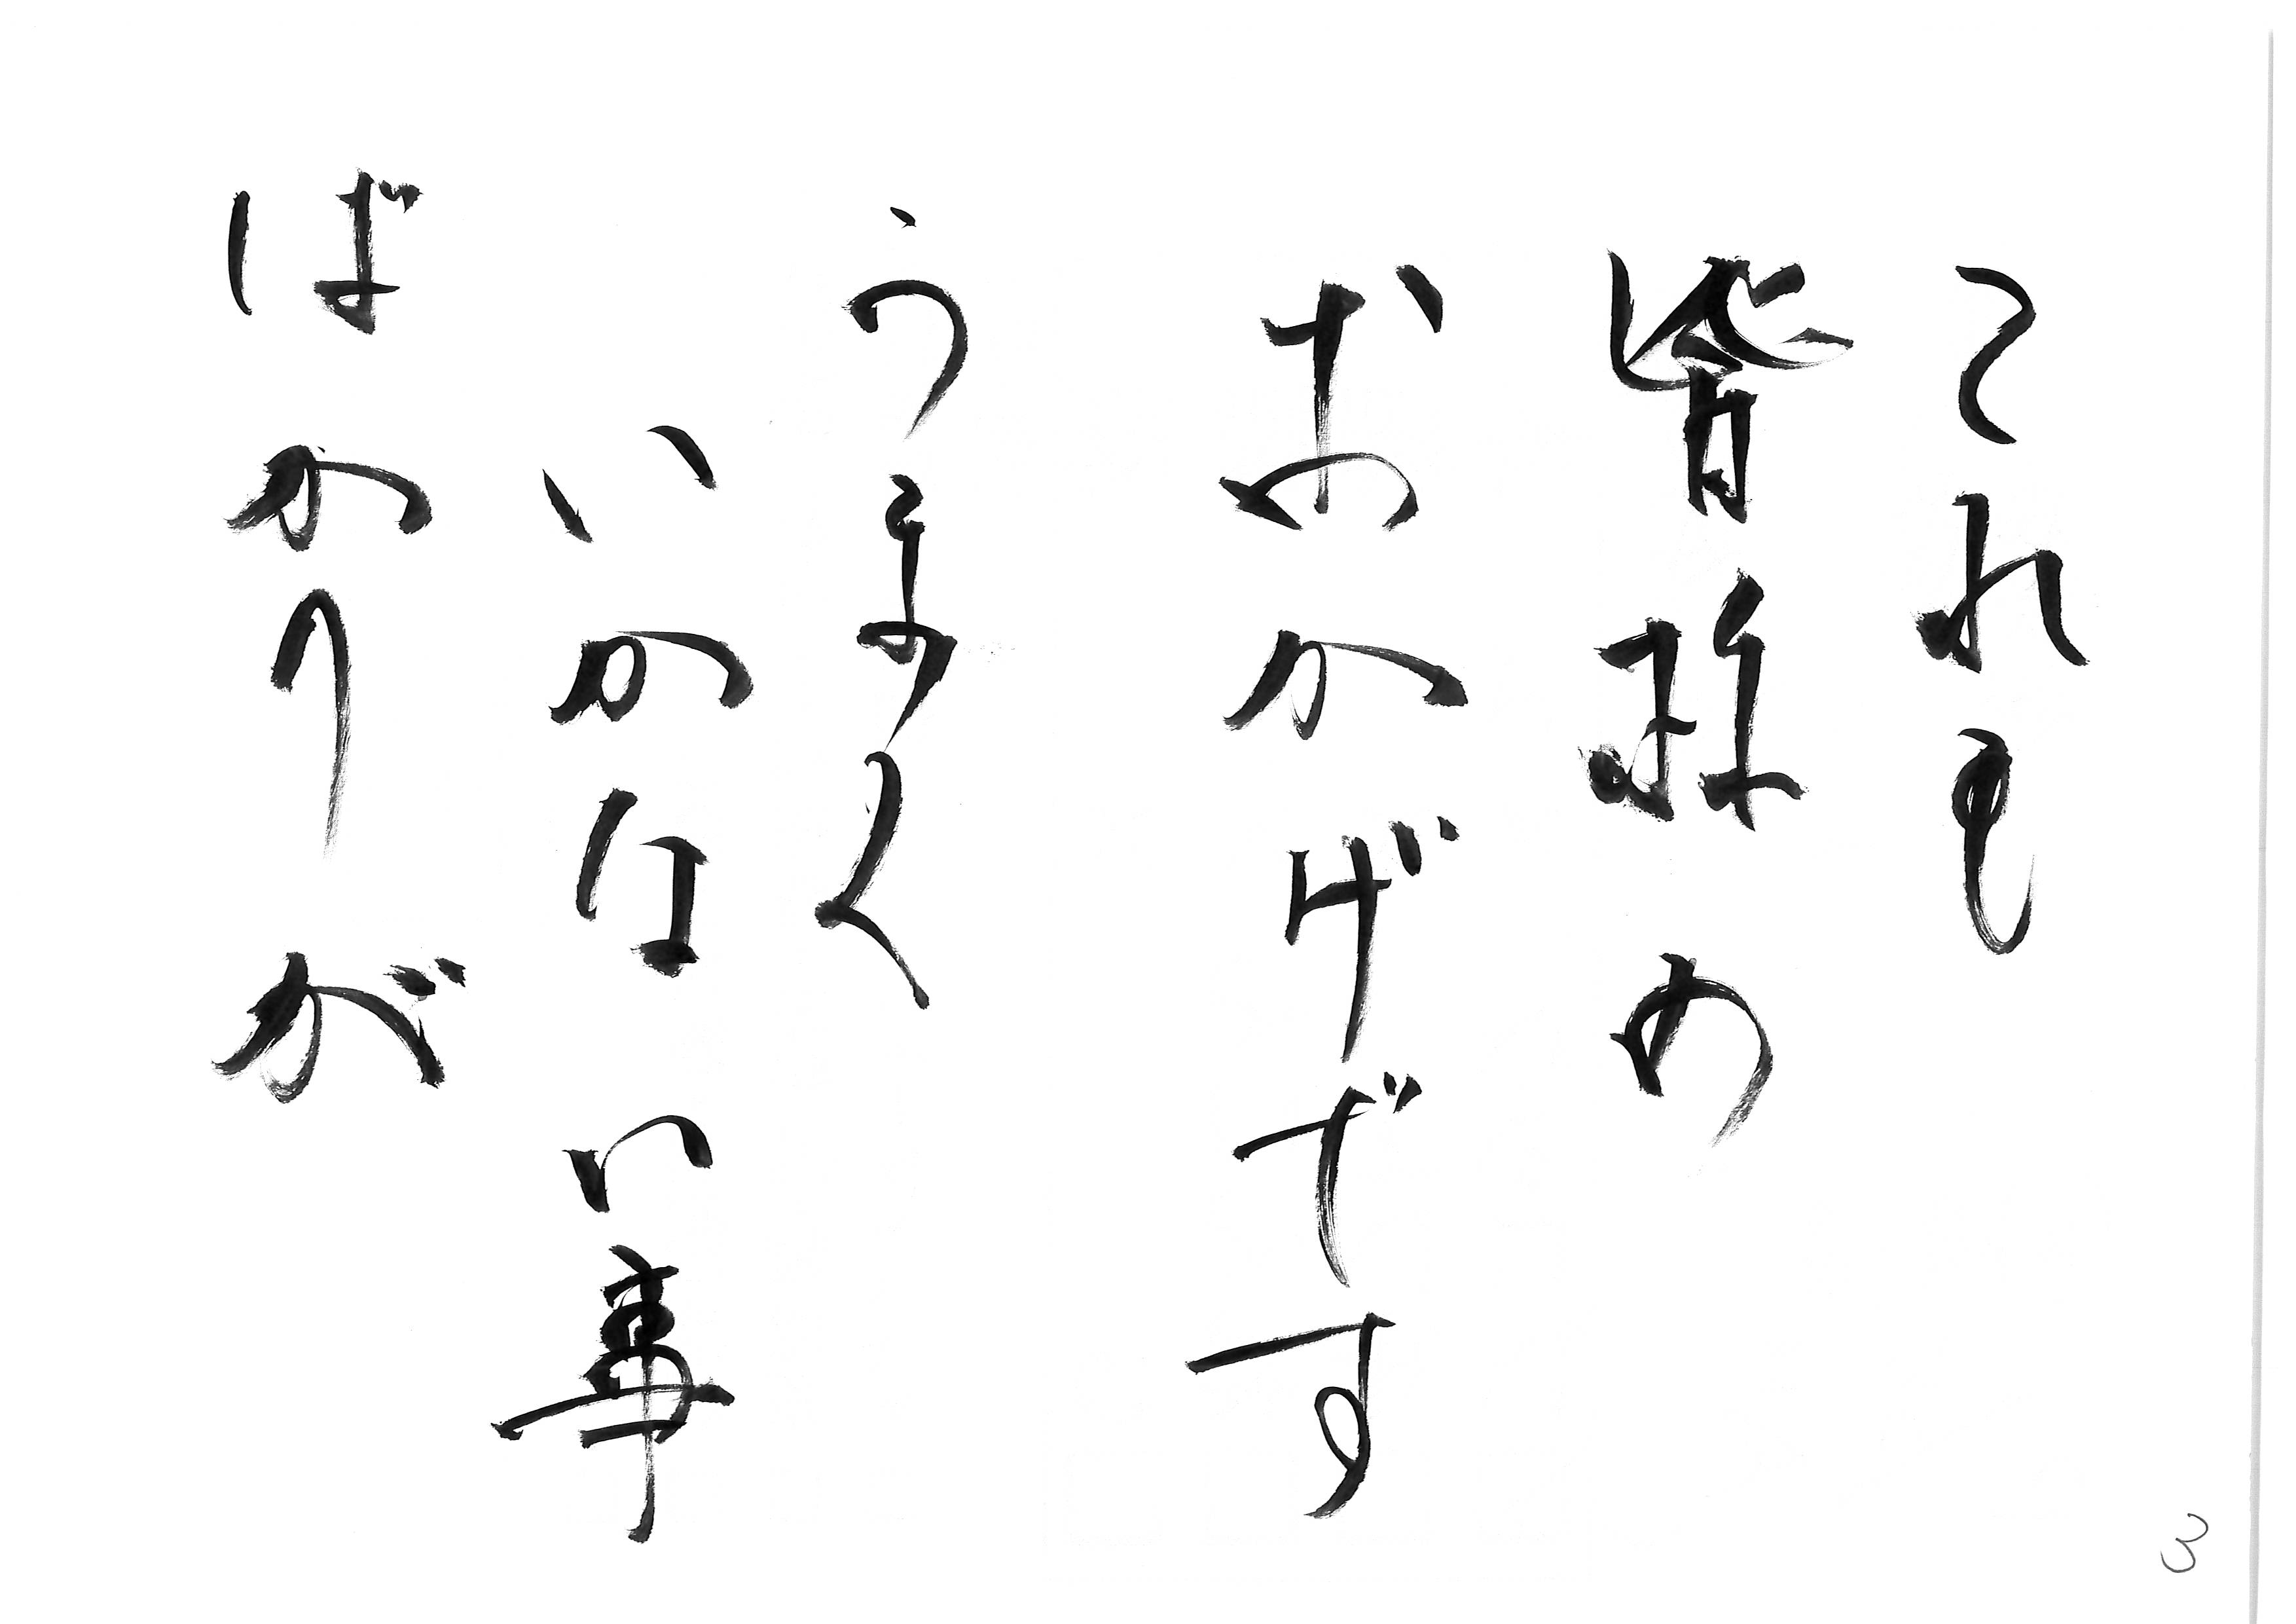 これも
皆様の
おかげです
うまく
いかない事
ばかりが
3